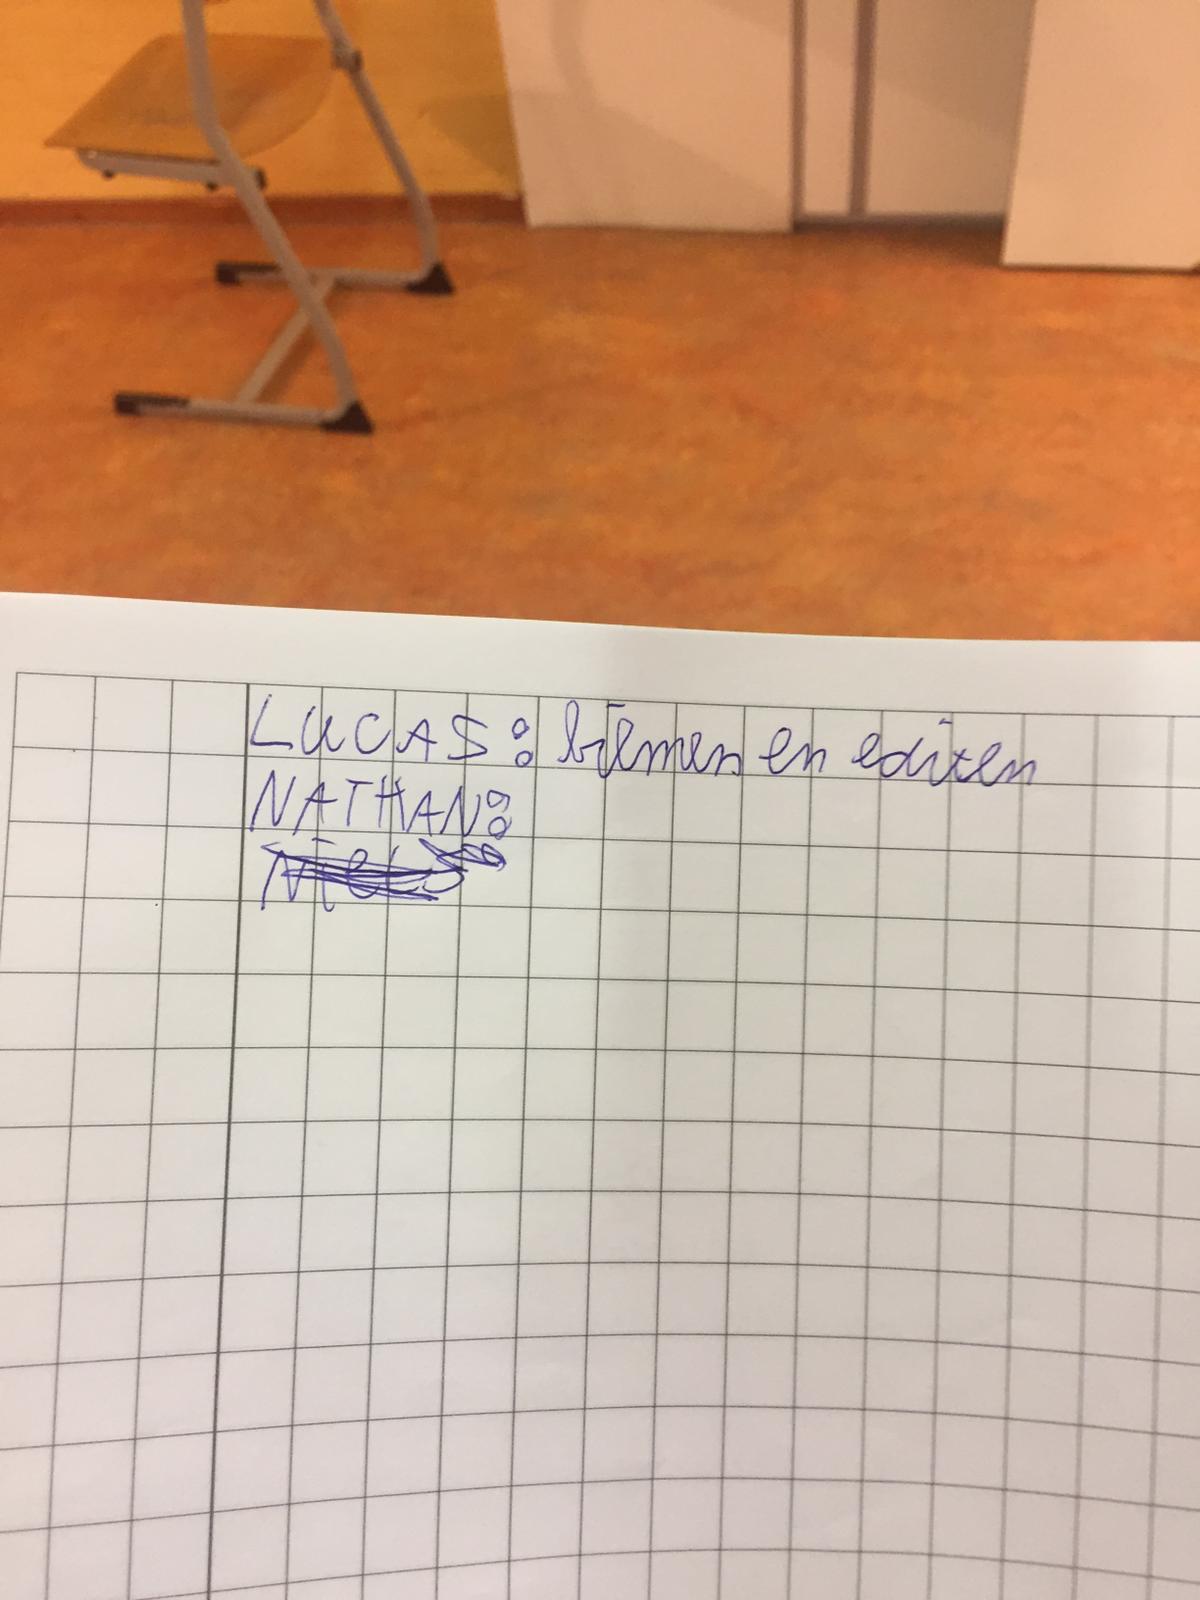 LUCAS: filmen en editen
NATHAN: